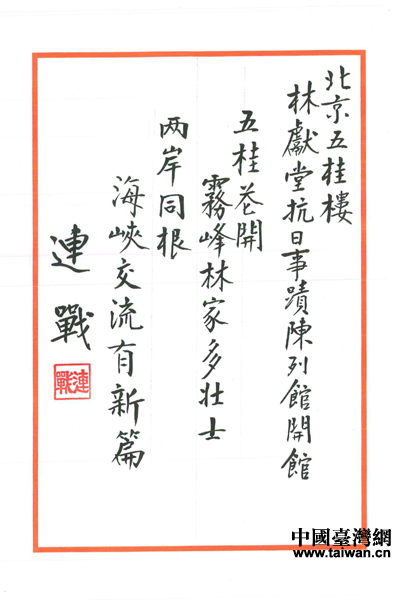 北京五桂樓
林獻堂抗日事蹟陳列館開館
五桂花開
霧峰林家多壯士
兩岸同根
海峽交流有新篇
連戰
連戰
中國臺灣網
www.taiwan.cn